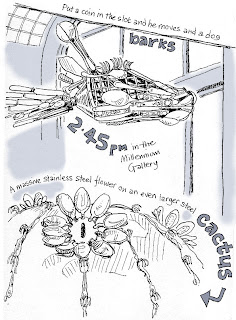 Put a coin in the slot and he moves and a dog
barks
2.45pm in the
Millennium
Gallery
A massive stainless steel flower on an even larger steel
cactus